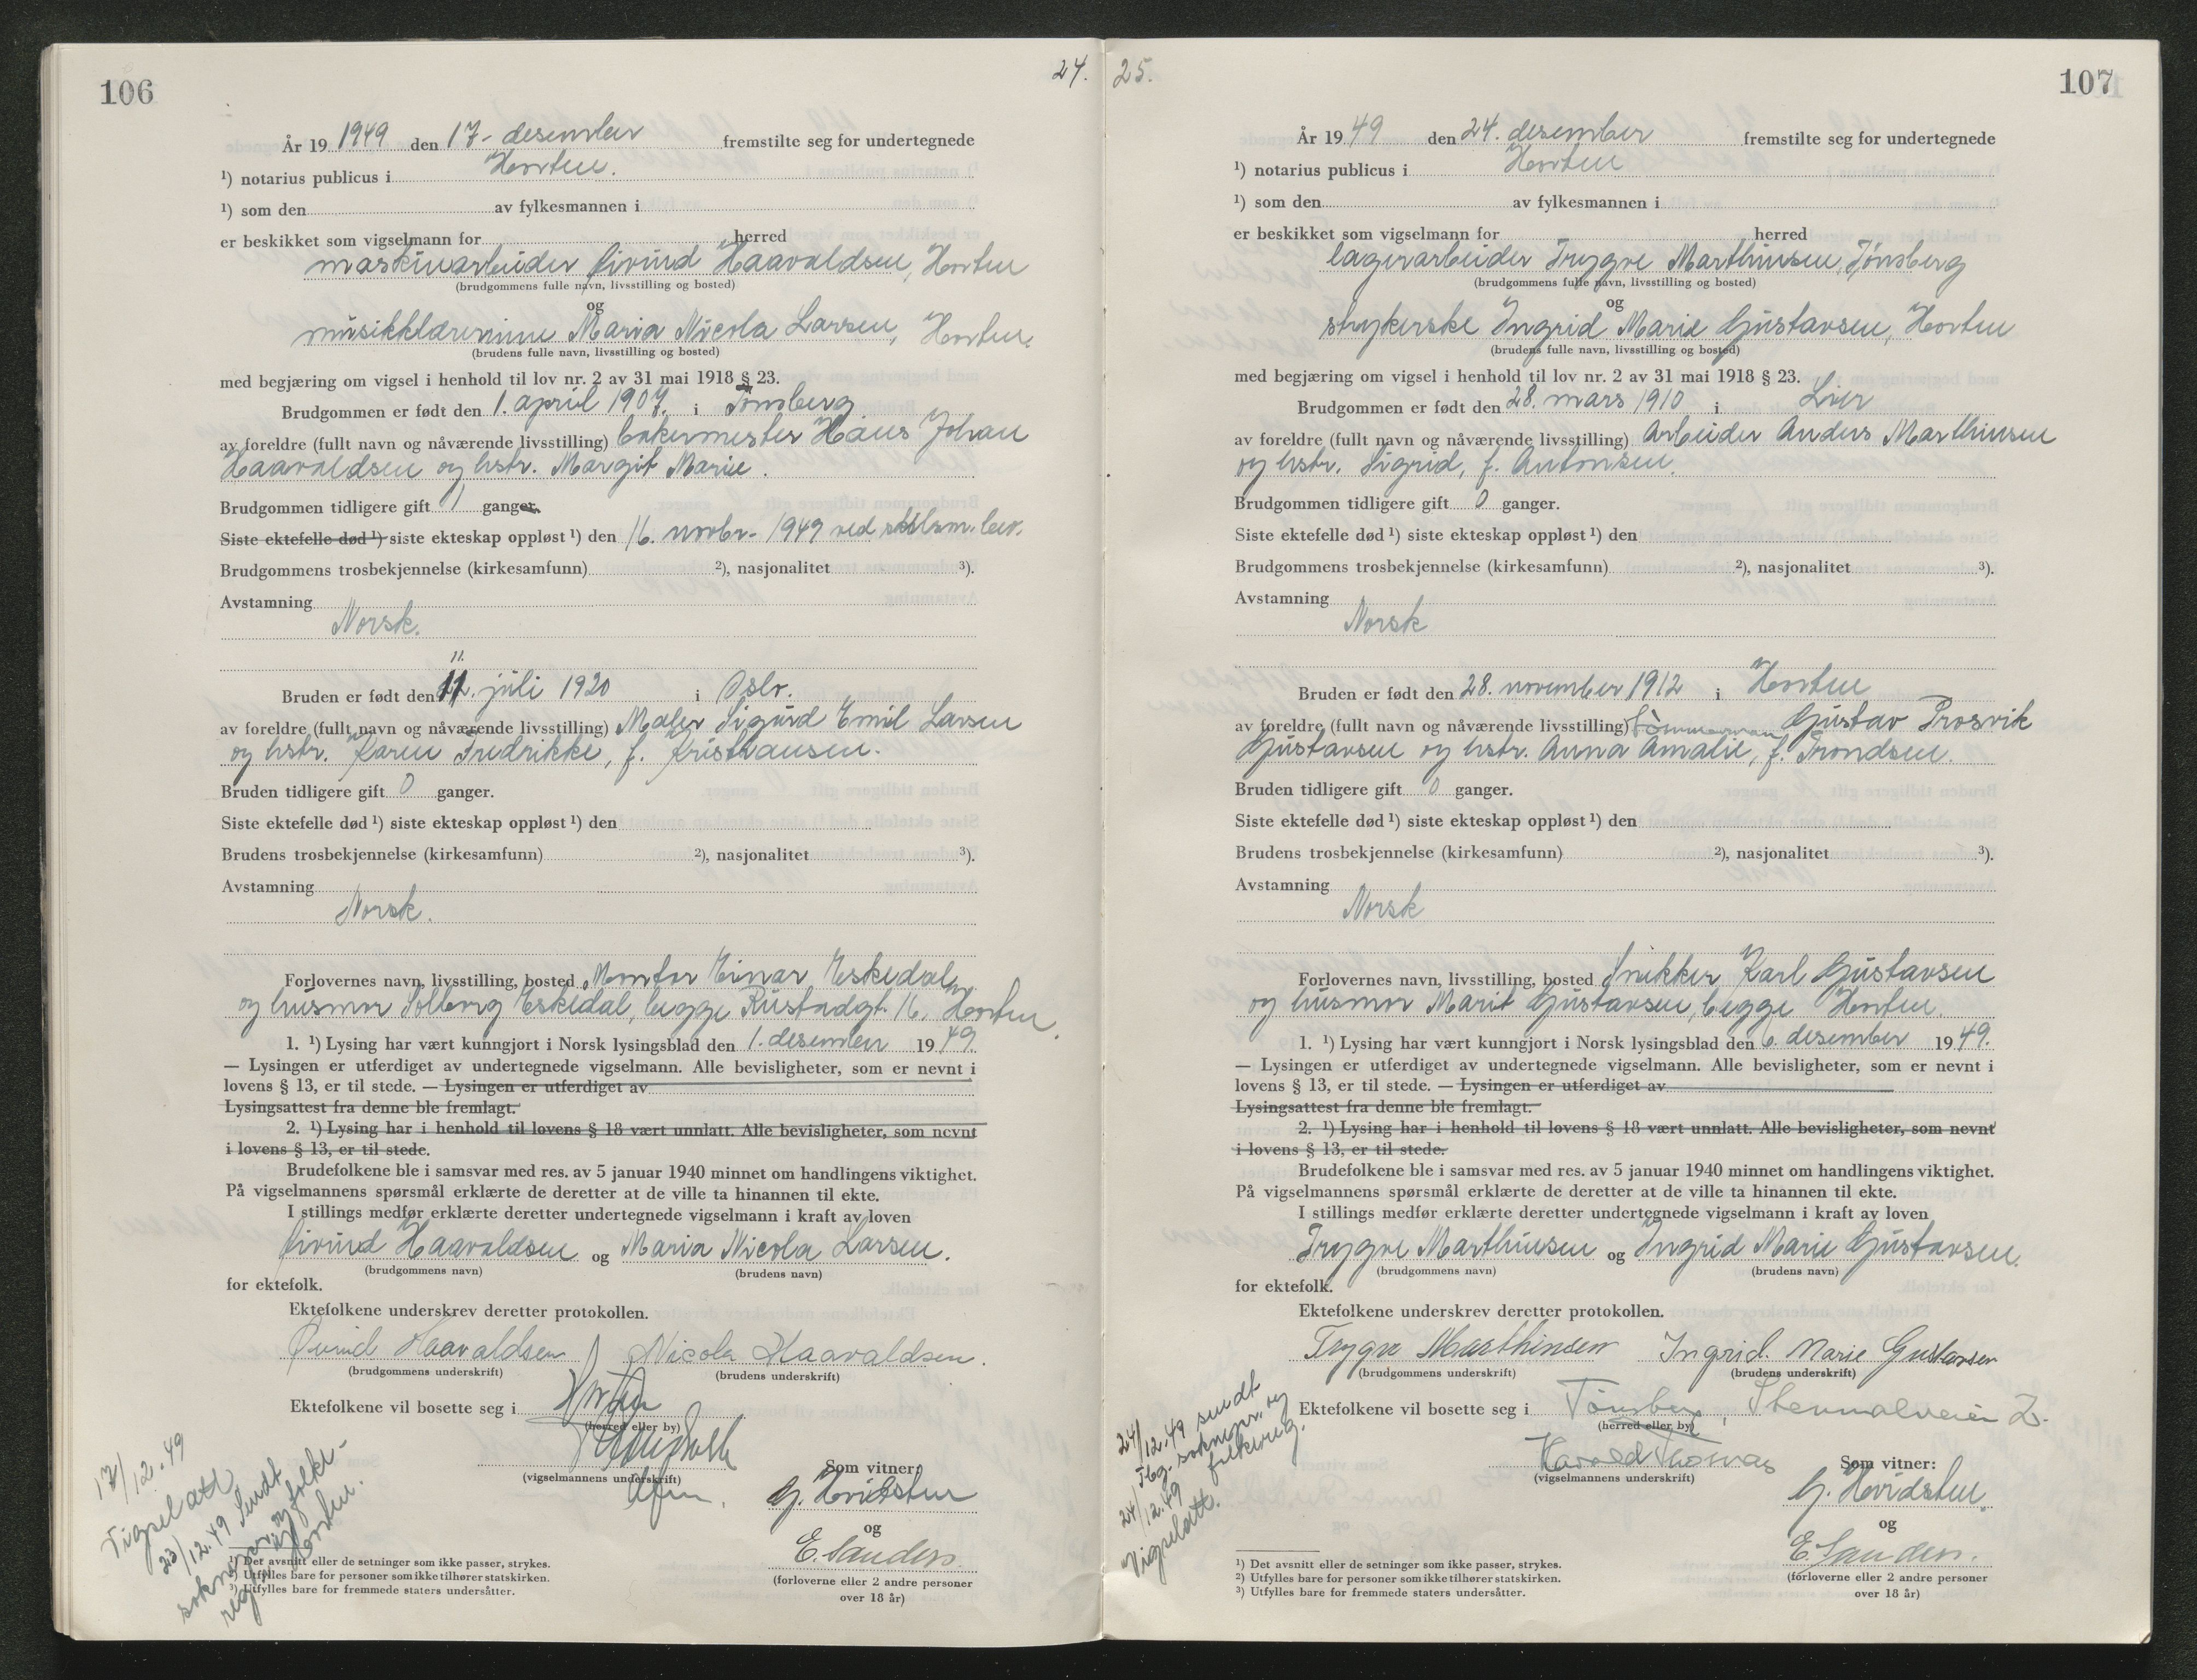 106
24.
År 19 1949 den 17- desember fremstilte seg for undertegnede
¹) notarius publicus i Horten.
¹) som den av fylkesmannen i
er beskikket som vigselmann for herred
maskinarbeider Eivind Haavaldsen, Horten
(brudgommens fulle navn, livsstilling og bosted)
og
musikklærerinne Maria Nicola Larsen, Horten.
(brudens fulle navn, livsstilling og bosted)
med begjæring om vigsel i henhold til lov nr. 2 av 31 mai 1918 § 23.
Brudgommen er født den 1. april 1907. i Tønsberg
av foreldre (fullt navn og nåværende livsstilling) bakermester Hans Johan
Haavaldsen og hstr. Margit Marie.
Brudgommen tidligere gift 1 ganger.
Siste ektefelle død ¹) siste ekteskap oppløst ¹) den 16. novbr. 1949 ved skilsm. bev.
Brudgommens trosbekjennelse (kirkesamfunn) ²), nasjonalitet ³).
Avstamning
Norsk.
11.
Bruden er født den 11. juli 1920 i Oslo.
av foreldre (fullt navn og nåværende livsstilling) Maler Sigurd Emil Larsen
og hstr. Karen Fredrikke, f. Kristiansen.
Bruden tidligere gift 0 ganger.
Siste ektefelle død ¹) siste ekteskap oppløst ¹) den
Brudens trosbekjennelse (kirkesamfunn) ²), nasjonalitet ³).
Avstamning
Norsk.
Forlovernes navn, livsstilling, bosted Montør Einar Eskedal
og husmor Solberg Eskedal, begge Rustadgt. 16, Horten.
1. ¹) Lysing har vært kunngjort i Norsk lysingsblad den 1. desember 19 49.
— Lysingen er utferdiget av undertegnede vigselmann. Alle bevisligheter, som er nevnt i
lovens § 13, er til stede. — Lysingen er utferdiget av
Lysingsattest fra denne ble fremlagt.
2. ¹) Lysing har i henhold til lovens § 18 vært unnlatt. Alle bevisligheter, som nevnt
i lovens § 13, er til stede.
Brudefolkene ble i samsvar med res. av 5 januar 1940 minnet om handlingens viktighet.
På vigselmannens spørsmål erklærte de deretter at de ville ta hinannen til ekte.
I stillings medfør erklærte deretter undertegnede vigselmann i kraft av loven
Eivind Haavaldsen og Maria Nicola Larsen.
(brudgommens navn) (brudens navn)
for ektefolk.
Ektefolkene underskrev deretter protokollen.
Eivind Haavaldsen Nicola Haavaldsen.
(brudgommens underskrift) (brudens underskrift)
Ektefolkene vil bosette seg i Horten
(herred eller by)
(vigselmannens underskrift)
Som vitner:
G. Hvidsten
og
E. Sanders
(forloverne eller 2 andre personer
over 18 år)
17/12.49
Vigselatt.
23/12.49 Sendt
sokneprest og folke-
reg. i Horten.
¹) Det avsnitt eller de setninger som ikke passer, strykes.
²) Utfylles bare for personer som ikke tilhører statskirken.
³) Utfylles bare for fremmede staters undersåtter.
25.
107
År 19 49 den 24. desember fremstilte seg for undertegnede
¹) notarius publicus i Horten
¹) som den av fylkesmannen i
er beskikket som vigselmann for herred
lagerarbeider Trygve Marthinsen, Tønsberg
(brudgommens fulle navn, livsstilling og bosted)
og
strykerske Ingrid Marie Gustavsen, Horten
(brudens fulle navn, livsstilling og bosted)
med begjæring om vigsel i henhold til lov nr. 2 av 31 mai 1918 § 23.
Brudgommen er født den 28. mars 1910 i Lier
av foreldre (fullt navn og nåværende livsstilling) Arbeider Anders Marthinsen
og hstr. Sigrid, f. Antonsen.
Brudgommen tidligere gift 0 ganger.
Siste ektefelle død ¹) siste ekteskap oppløst ¹) den
Brudgommens trosbekjennelse (kirkesamfunn) ²), nasjonalitet ³).
Avstamning
Norsk
Bruden er født den 28. november 1912 i Horten
av foreldre (fullt navn og nåværende livsstilling) tømmermann Gustav Prosvik
Gustavsen og hstr. Anna Amalie, f. Trondsen.
Bruden tidligere gift 0 ganger.
Siste ektefelle død ¹) siste ekteskap oppløst ¹) den
Brudens trosbekjennelse (kirkesamfunn) ²), nasjonalitet ³).
Avstamning
Norsk
Forlovernes navn, livsstilling, bosted Snikker Karl Gustavsen
og husmor Marit Gustavsen, begge Horten.
1. ¹) Lysing har vært kunngjort i Norsk lysingsblad den 6. desember 19 49.
— Lysingen er utferdiget av undertegnede vigselmann. Alle bevisligheter, som er nevnt i
lovens § 13, er til stede. — Lysingen er utferdiget av
Lysingsattest fra denne ble fremlagt.
2. ¹) Lysing har i henhold til lovens § 18 vært unnlatt. Alle bevisligheter, som nevnt
i lovens § 13, er til stede.
Brudefolkene ble i samsvar med res. av 5 januar 1940 minnet om handlingens viktighet.
På vigselmannens spørsmål erklærte de deretter at de ville ta hinannen til ekte.
I stillings medfør erklærte deretter undertegnede vigselmann i kraft av loven
Trygve Marthinsen og Ingrid Marie Gustavsen.
(brudgommens navn) (brudens navn)
for ektefolk.
Ektefolkene underskrev deretter protokollen.
Trygve Marthinsen Ingrid Marie Gustavsen
(brudgommens underskrift) (brudens underskrift)
Ektefolkene vil bosette seg i Tønsberg,
(herred eller by)
Harald Thomas
(vigselmannens underskrift)
Som vitner:
G. Hvidsten.
og
E. Sanders.
(forloverne eller 2 andre personer
over 18 år)
24/12.49 sendt
Tbg. soknepr. og
folkereg.
24/12.49
Vigselatt.
¹) Det avsnitt eller de setninger som ikke passer, strykes.
²) Utfylles bare for personer som ikke tilhører statskirken.
³) Utfylles bare for fremmede staters undersåtter.